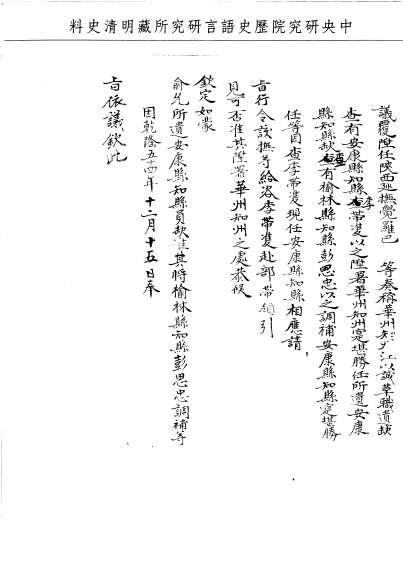 中央研究院歷史語言研究所藏明清史料
議覆陞任陝西巡撫覺羅巴　等奏稱華州知州汪以誠革職遺缺
查有安康縣知縣李帶雙以之陞署華州知州寔堪勝任所遺安康
縣知縣缺查有榆林縣知縣彭思忠以之調補安康縣知縣寔堪勝
任等因查李帶雙現任安康縣知縣相應請
旨行令該撫等給咨李帶雙赴部帶領引
見可否准其陞署華州知州之處恭候
欽定如蒙
俞允所遺安康縣知縣員缺准其將榆林縣知縣彭思忠調補等
因乾隆五十四年十二月十五日奉
旨依議欽此